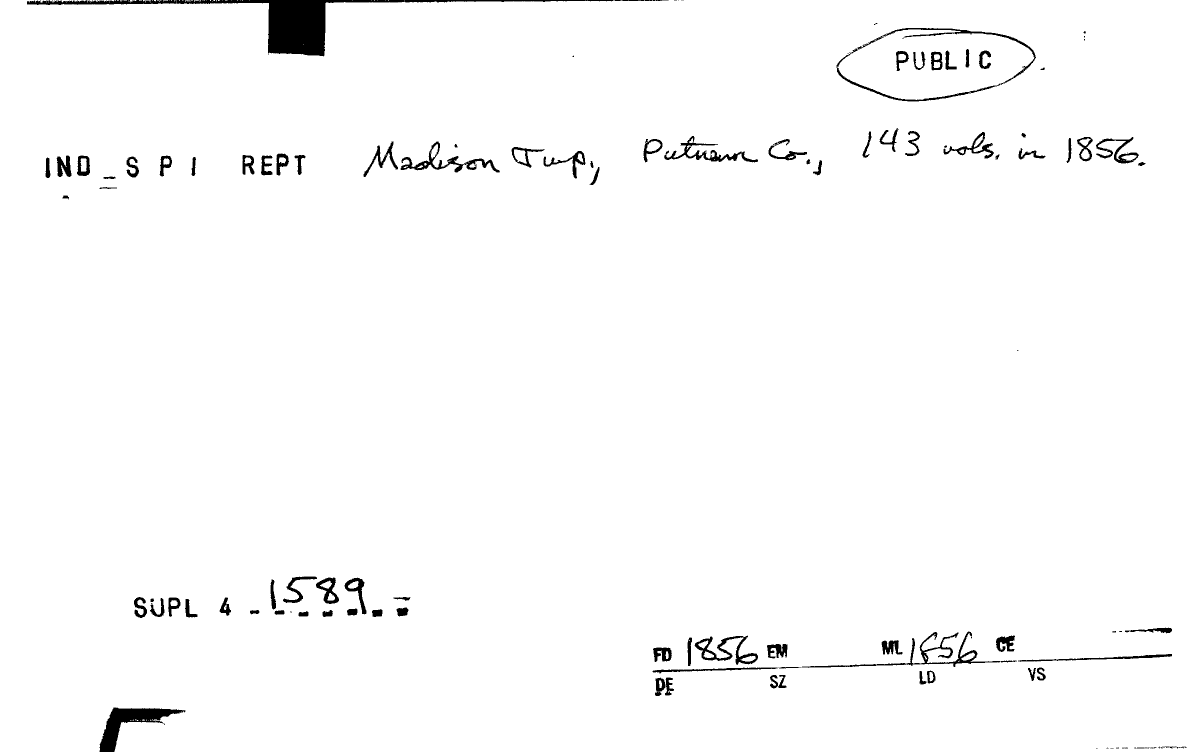 PUBLIC
IND_S P I REPT Madison Twp, Putnam Co., 143 vols. in 1856.
SUPL 4 1589
FD 1856 EM ML 1856 CE
DE SZ LD VS